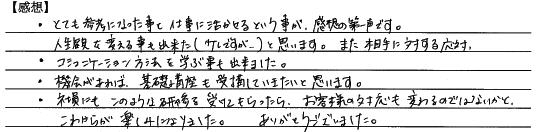 【感想】
・とても参考になった事と仕事に活かせるという事が、感想の第一声です。
人生観を考える事も出来た(少しですが…)と思います。また相手に対する応対、
・コミュニケーション方法を学ぶ事も出来ました。
・機会があれば、基礎講座も受講していきたいと思います。
・社員にもこのような研修を受けてもらったら、お客様の対応も変わるのではないかと、
これからが楽しみになりました。ありがとうございました。